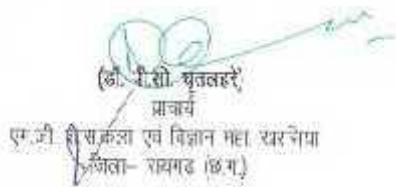 (डॉ. पी.सी. घृतलहरे)
प्राचार्य
एम.जी. कला एवं विज्ञान महा. खरसिया
जिला– रायगढ (छ.ग.)